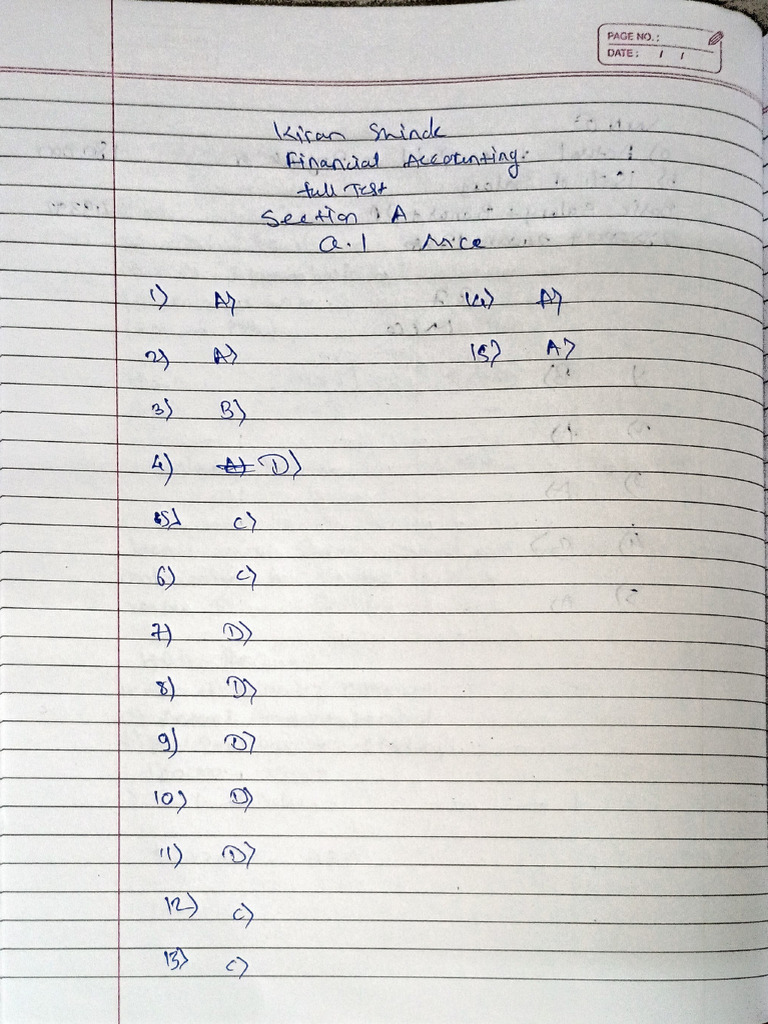 PAGE NO.:
DATE: / /
Kiran Shinde
Financial Accounting.
full Test
Section A
Q.1 Mcq
1) A)
2) A)
3) B)
4) A) D)
5) C)
6) C)
7) D)
8) D)
9) D)
10) D)
11) D)
12) C)
13) C)
14) A)
15) A)